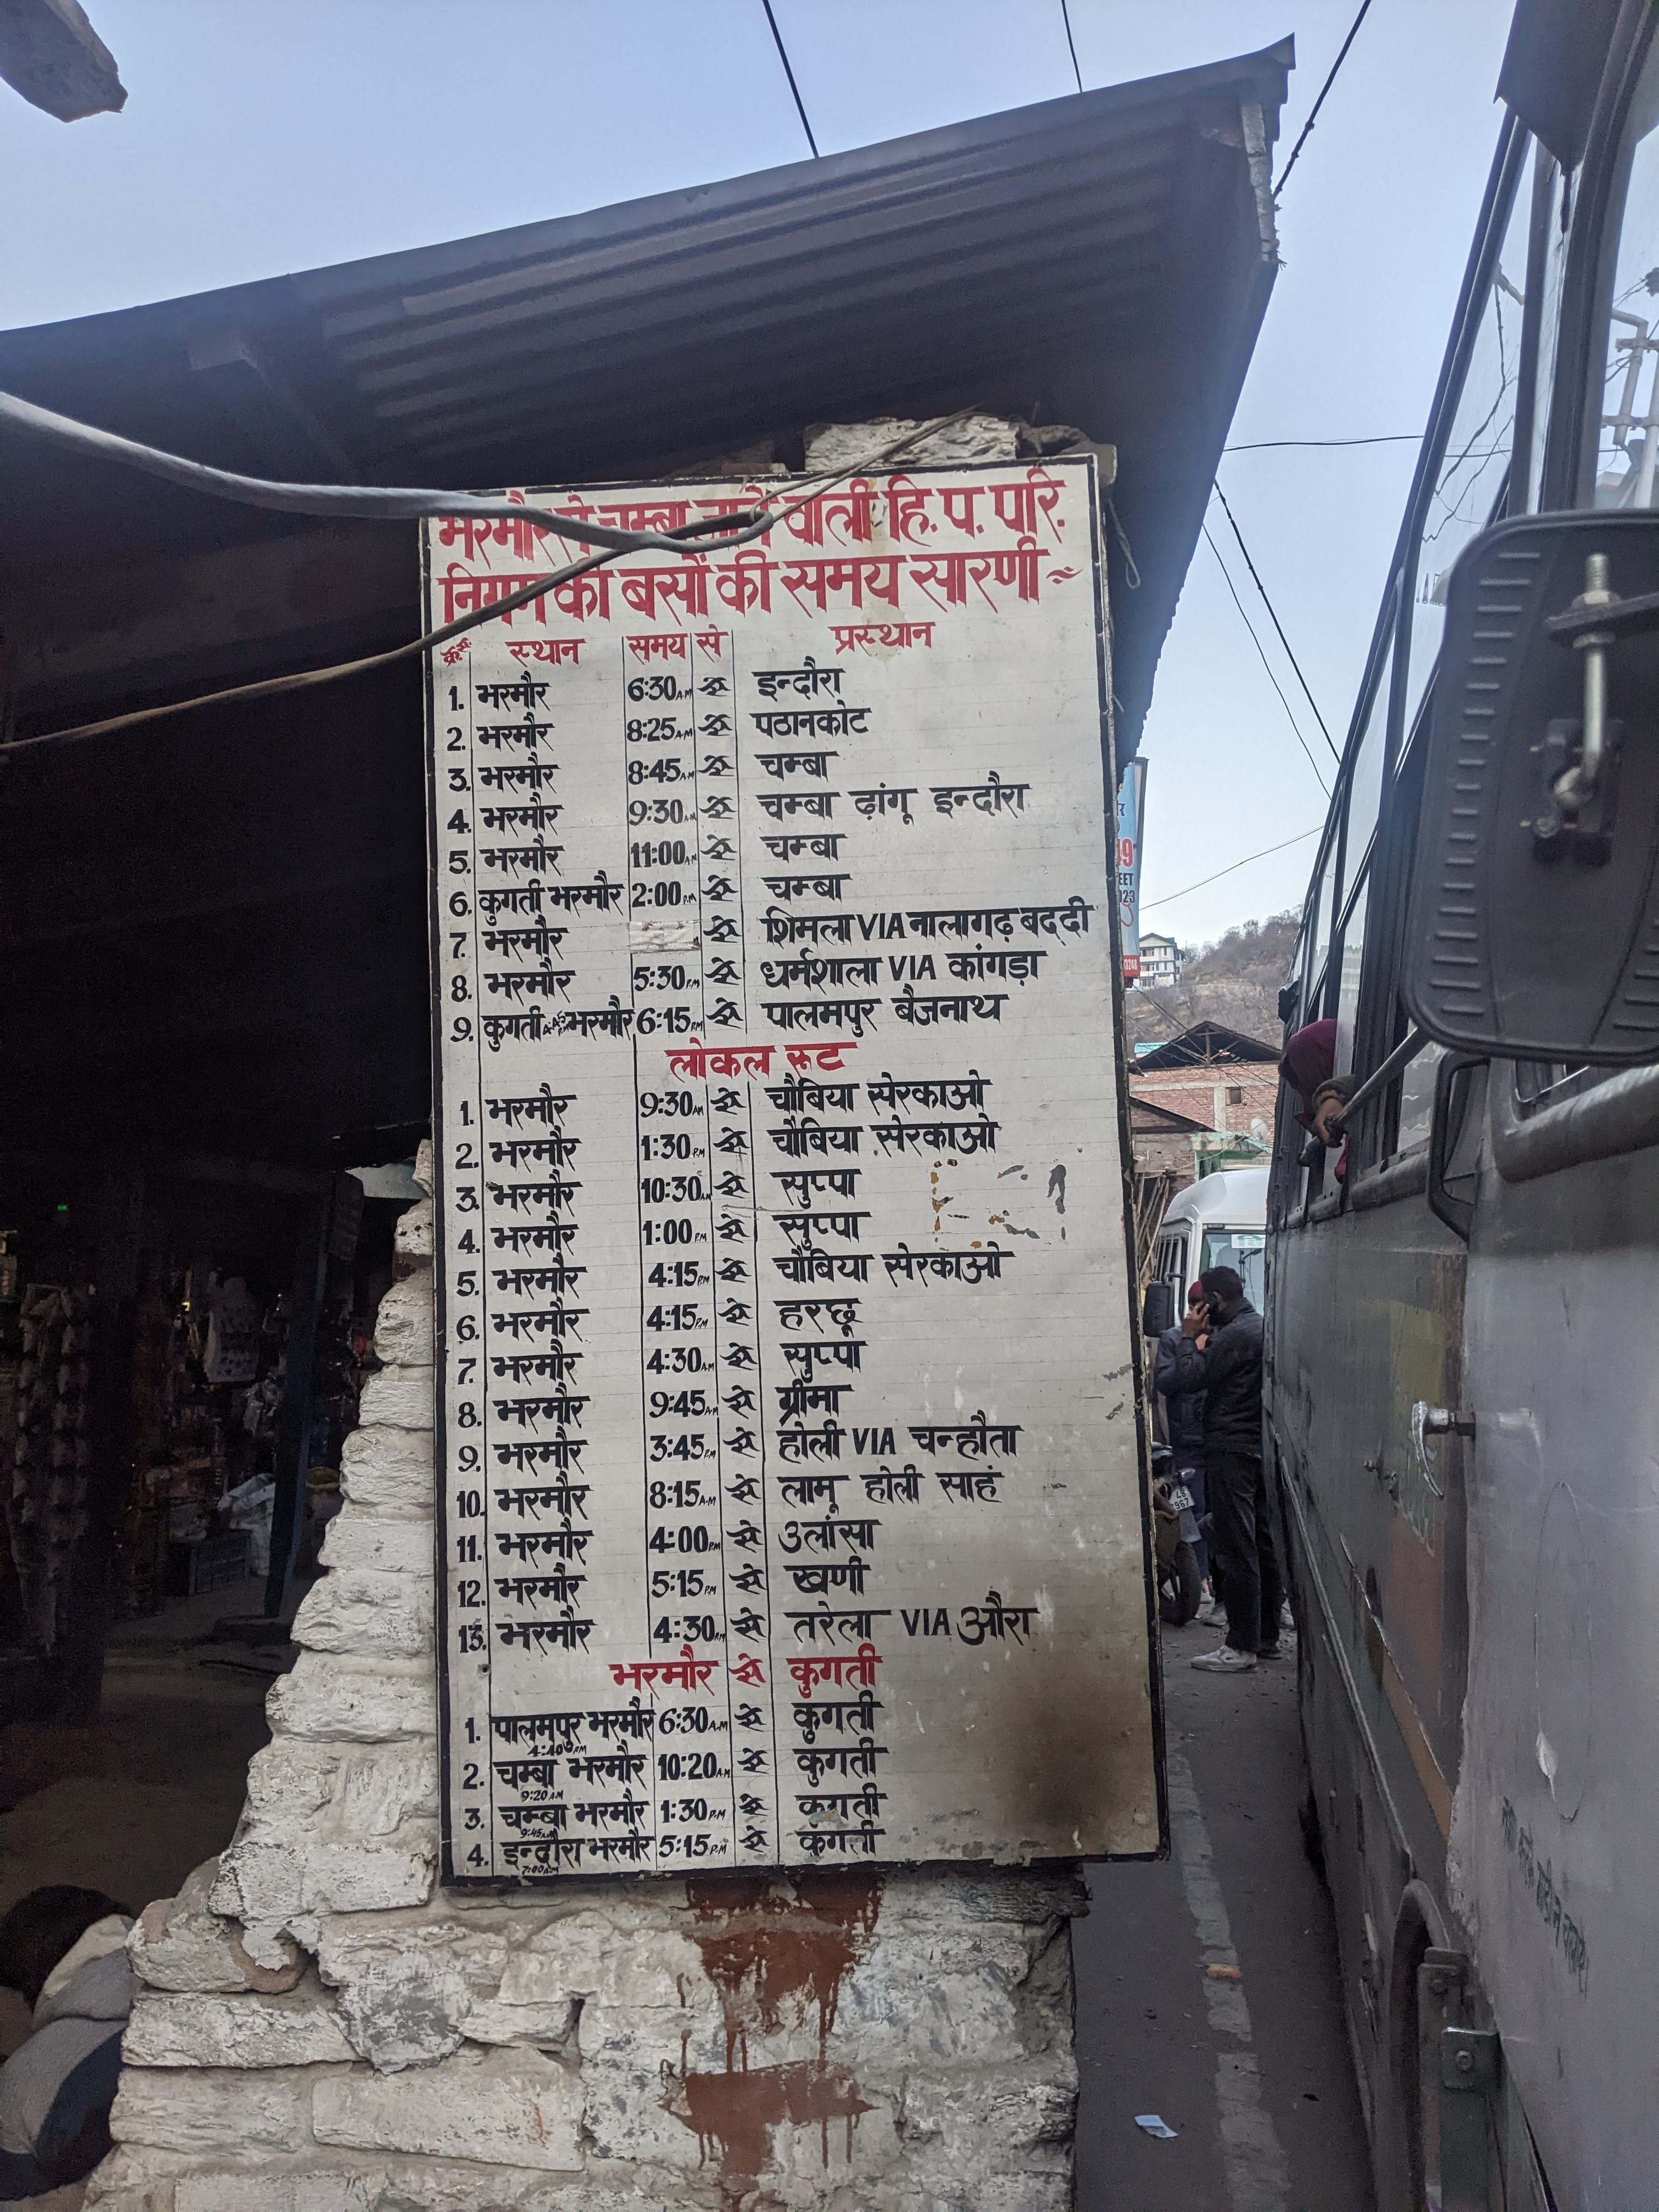 भरमौर से चम्बा जाने वाली हि.प. परि.
निगम की बसों की समय सारणी
क्र.सं. स्थान समय से प्रस्थान
1. भरमौर 6:30 A.M से इन्दौरा
2. भरमौर 8:25 A.M से पठानकोट
3. भरमौर 8:45 A.M से चम्बा
4. भरमौर 9:30 A.M से चम्बा ढ़ांगू इन्दौरा
5. भरमौर 11:00 A.M से चम्बा
6. कुगती भरमौर 2:00 P.M से चम्बा
7. भरमौर से शिमला VIA नालागढ़ बददी
8. भरमौर 5:30 P.M से धर्मशाला VIA कांगड़ा
9. कुगती भरमौर 6:15 P.M से पालमपुर बैजनाथ
लोकल रूट
1. भरमौर 9:30 AM से चौबिया सेरकाओ
2. भरमौर 1:30 P.M से चौबिया सेरकाओ
3. भरमौर 10:30 A.M से सुप्पा
4. भरमौर 1:00 P.M से सुप्पा
5. भरमौर 4:15 P.M से चौबिया सेरकाओ
6. भरमौर 4:15 P.M से हरछू
7. भरमौर 4:30 A.M से सुप्पा
8. भरमौर 9:45 A.M से ग्रीमा
9. भरमौर 3:45 P.M से होली VIA चन्हौता
10. भरमौर 8:15 A.M से लामू होली साहं
11. भरमौर 4:00 P.M से उलांसा
12. भरमौर 5:15 P.M से खणी
13. भरमौर 4:30 P.M से तरेला VIA औरा
भरमौर से कुगती
1. पालमपुर भरमौर 6:30 A.M से कुगती
4:40 P.M
2. चम्बा भरमौर 10:20 A.M से कुगती
9:20 A.M
3. चम्बा भरमौर 1:30 P.M से कुगती
9:45 A.M
4. इन्दौरा भरमौर 5:15 P.M से कुगती
7:00 A.M